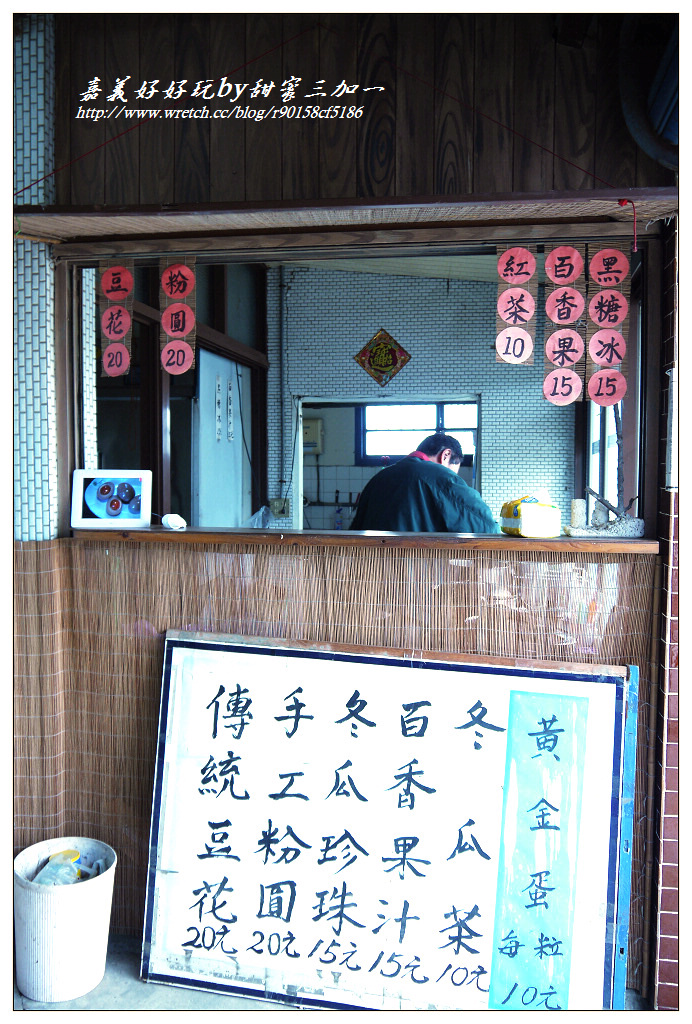 嘉義好好玩by甜蜜三加一
http://www.wretch.cc/blog/r90158cf5186
豆花20
粉圓20
紅茶10
百香果15
黑糖冰15
黃金蛋每粒10元
冬瓜茶10元
百香果汁15元
冬瓜珍珠15元
手工粉圓20元
傳統豆花20元